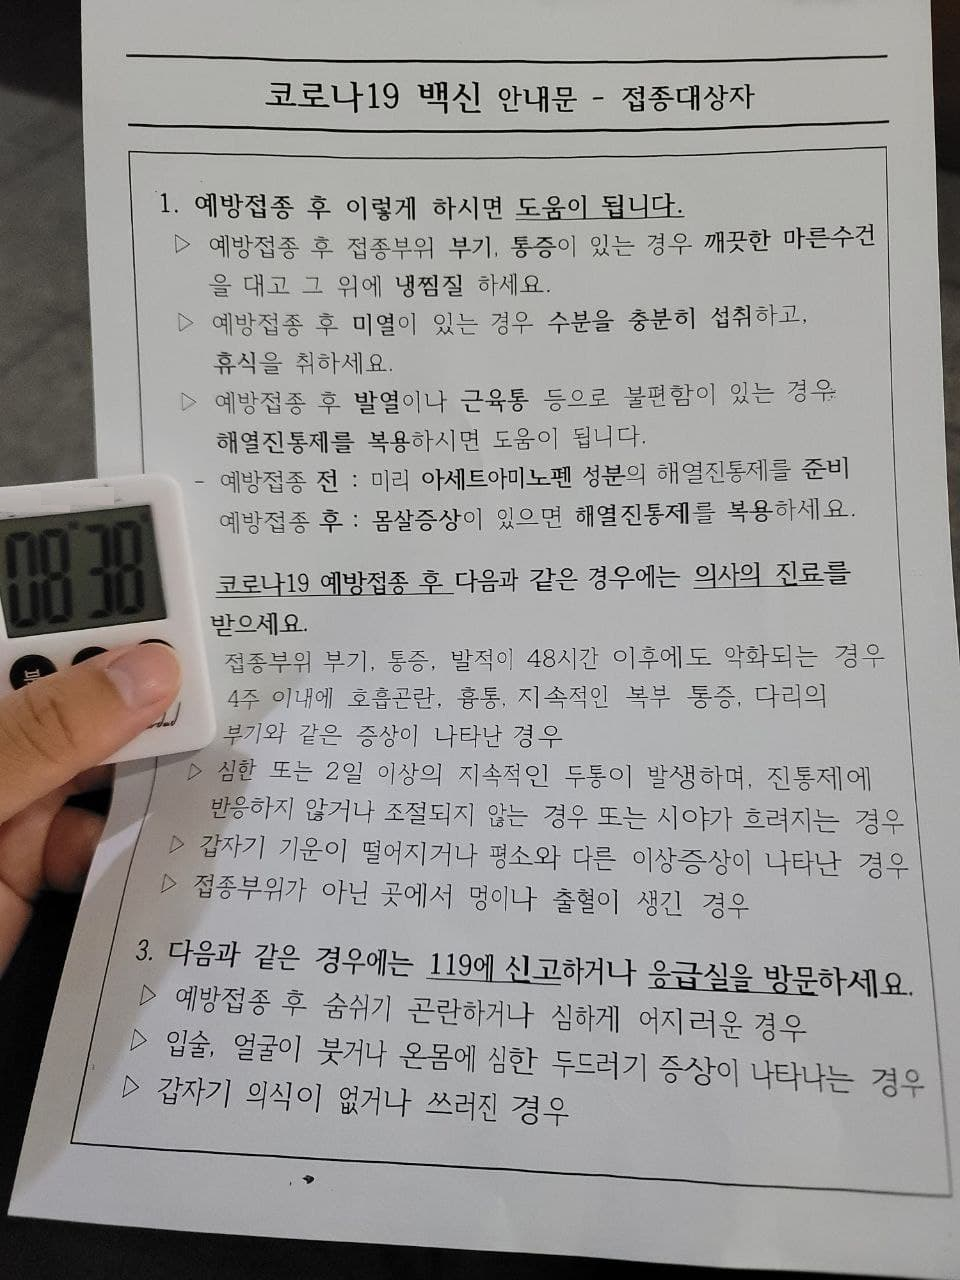 코로나19 백신 안내문 - 접종대상자
1. 예방접종 후 이렇게 하시면 도움이 됩니다.
▷ 예방접종 후 접종부위 부기, 통증이 있는 경우 깨끗한 마른수건
을 대고 그 위에 냉찜질 하세요.
▷ 예방접종 후 미열이 있는 경우 수분을 충분히 섭취하고,
휴식을 취하세요.
▷ 예방접종 후 발열이나 근육통 등으로 불편함이 있는 경우
해열진통제를 복용하시면 도움이 됩니다.
- 예방접종 전 : 미리 아세트아미노펜 성분의 해열진통제를 준비
예방접종 후 : 몸살증상이 있으면 해열진통제를 복용하세요.
08 38
분
코로나19 예방접종 후 다음과 같은 경우에는 의사의 진료를
받으세요.
접종부위 부기, 통증, 발적이 48시간 이후에도 악화되는 경우
4주 이내에 호흡곤란, 흉통, 지속적인 복부 통증, 다리의
부기와 같은 증상이 나타난 경우
▷ 심한 또는 2일 이상의 지속적인 두통이 발생하며, 진통제에
반응하지 않거나 조절되지 않는 경우 또는 시야가 흐려지는 경우
▷ 갑자기 기운이 떨어지거나 평소와 다른 이상증상이 나타난 경우
▷ 접종부위가 아닌 곳에서 멍이나 출혈이 생긴 경우
3. 다음과 같은 경우에는 119에 신고하거나 응급실을 방문하세요.
▷ 예방접종 후 숨쉬기 곤란하거나 심하게 어지러운 경우
▷ 입술, 얼굴이 붓거나 온몸에 심한 두드러기 증상이 나타나는 경우
▷ 갑자기 의식이 없거나 쓰러진 경우